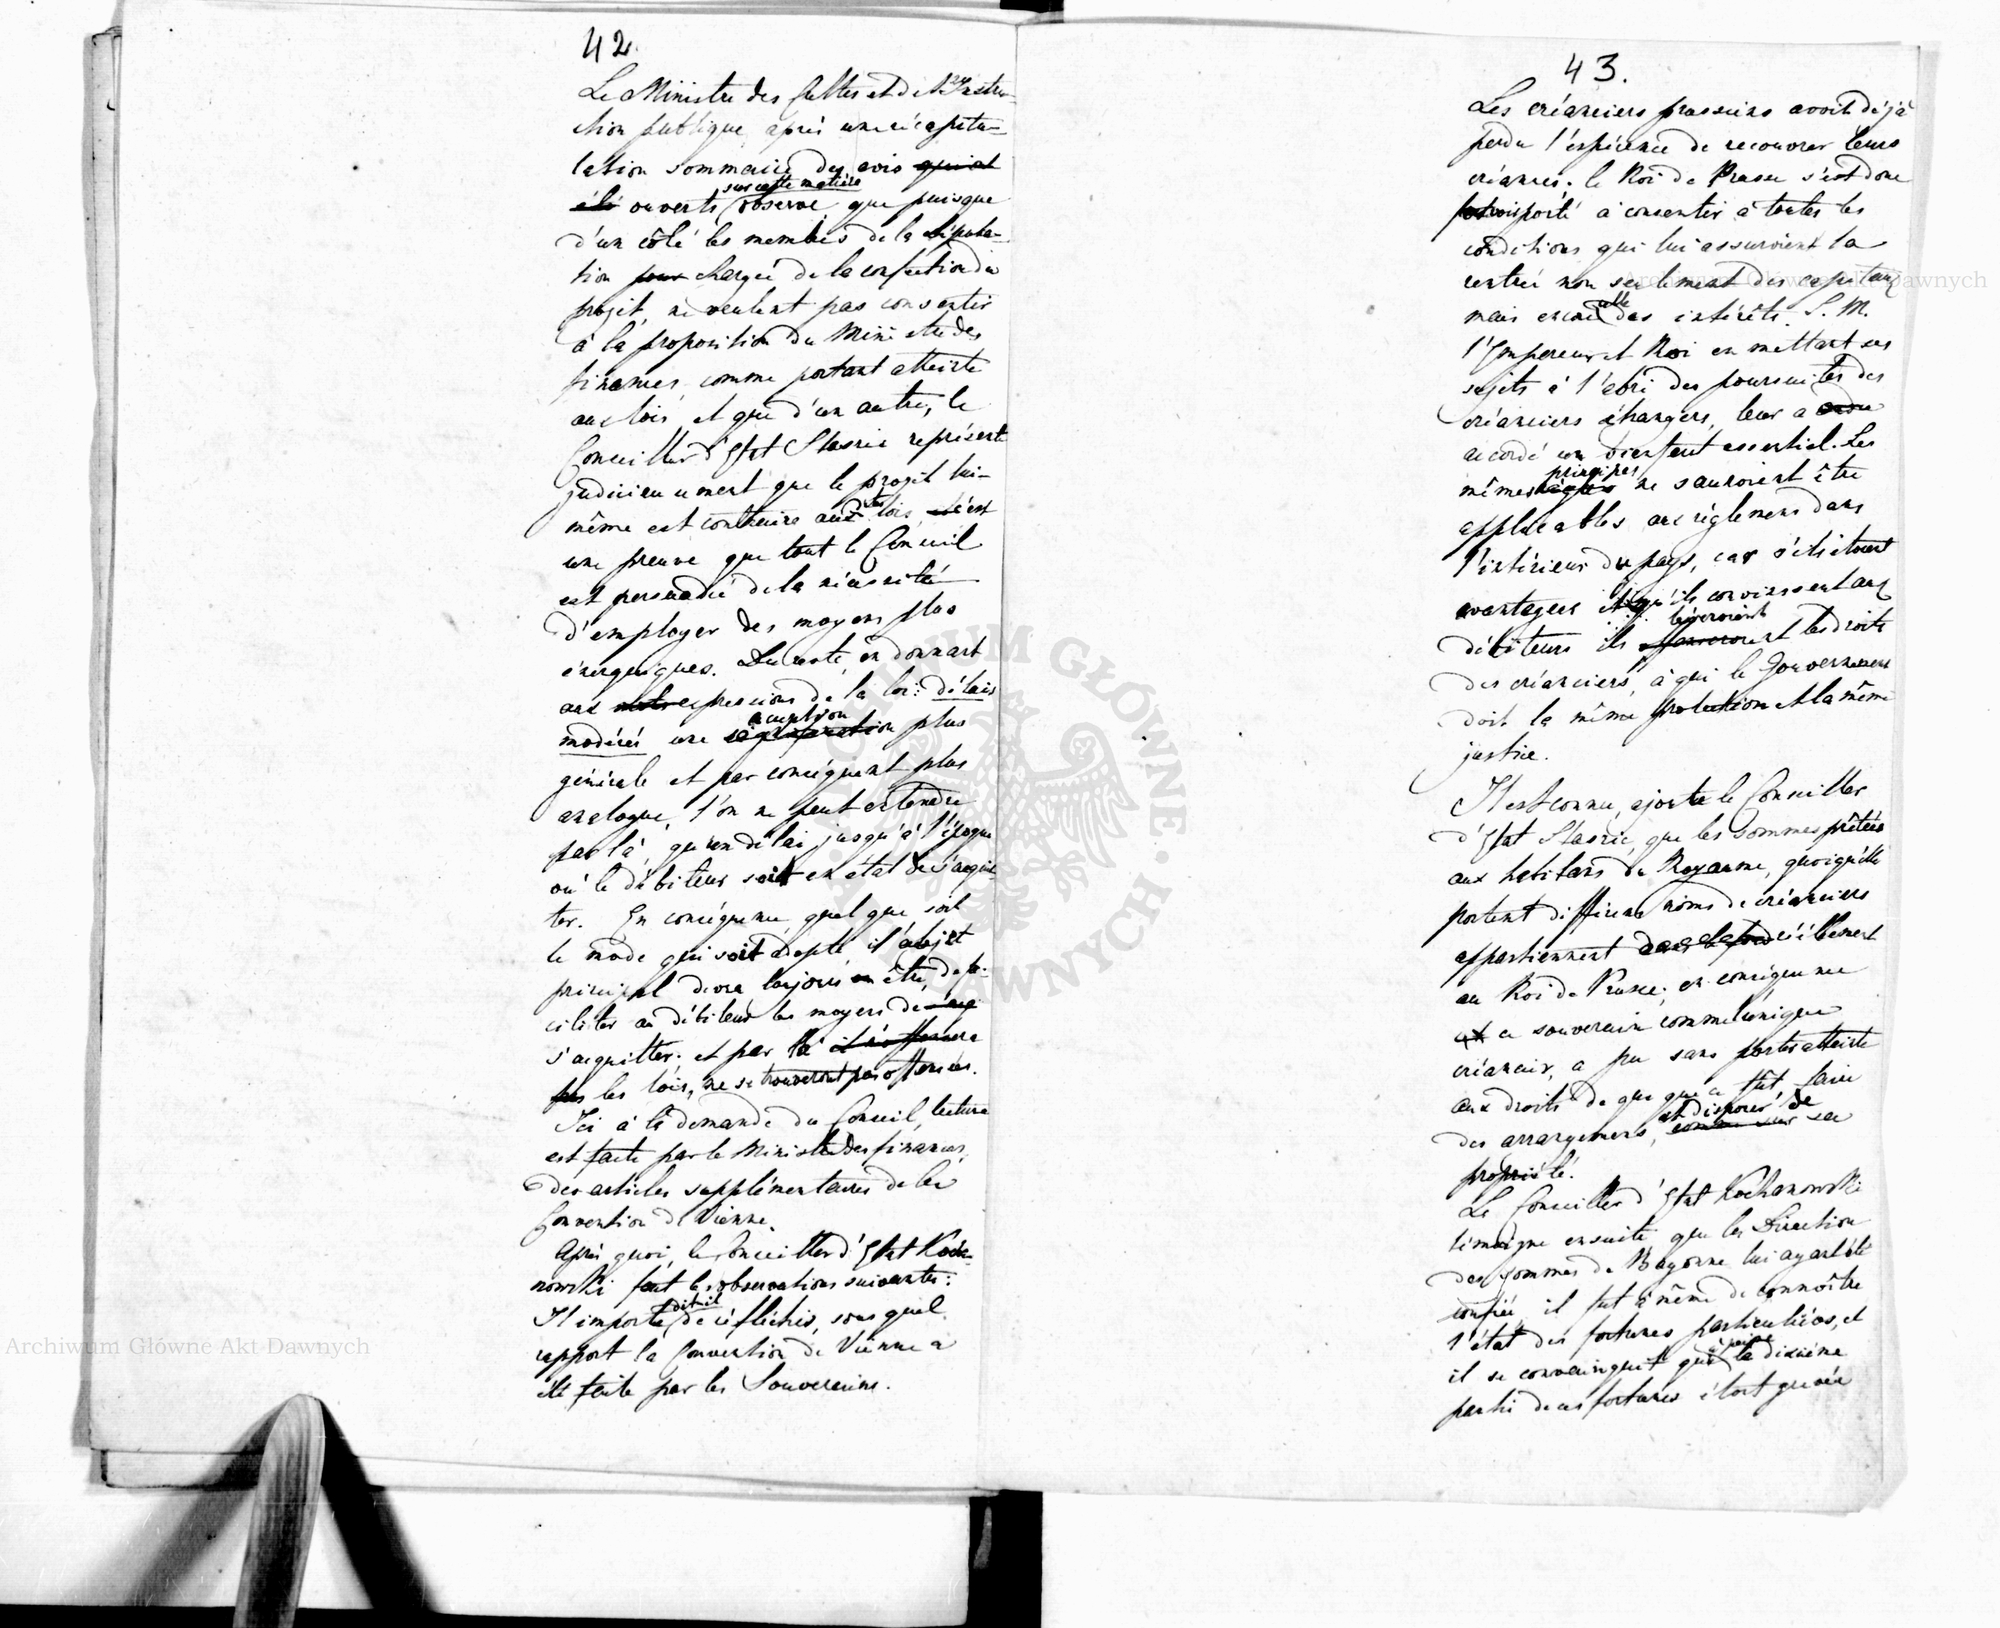 42.
Le Ministre des Cultes et de l'Instru-
ction publique, après une récapitu-
lation sommaire des avis qui ont
été ouverts sur cette matière observe, que puisque
d'un côté les membres de la députa-
tion pour chargée de la confection du
projet, ne veulent pas consentir
à la proposition du Ministre des
finances, comme portant atteinte
aux lois, et que d'un autre, le
Conseiller d'Etat Staszic représente
judicieusement que le projet lui-
même est contraire aux lois, c'est
une preuve que tout le Conseil
est persuadé de la nécessité
d'employer des moyens plus
énergiques. Du reste, en donnant
aux mots expressions de la loi: délais
modérés une signification acception plus
générale et par conséquent plus
analogue, l'on ne peut entendre
par là, qu'un délai jusqu'à l'époque
où le débiteur soit en état de s'acquit-
ter. En conséquence, quel que soit
le mode qui soit adopté, l'objet
principal devra toujours en être, de fa-
ciliter au débiteur les moyens de
s'acquitter; et par là il n'offensera
pas les lois, ne se trouveront pas offensées.
Ici à la demande du Conseil, lecture
est faite par le Ministre des finances,
des articles supplémentaires de la
Convention de Vienne.
Après quoi, le Conseiller d'Etat Kocha-
nowski fait les observations suivantes:
Il importe, dit-il, de réfléchir, sous quel
rapport la Convention de Vienne a
été faite par les Souverains.
43.
Les créanciers prussiens avoit déjà
perdu l'espérance de recouvrer leurs
créances; le Roi de Prusse s'est donc
porté à consentir à toutes les
conditions qui lui assuroient la
rentrée non seulement des capitaux
mais encore celle des intérêts. S. M.
l'Empereur et Roi en mettant ses
sujets à l'abri des poursuites des
créanciers étrangers, leur a
accordé un bienfait essentiel. Les
mêmes règles principes ne sauroient être
applicables aux règlemens dans
l'intérieur du pays, car s'ils étoient
avantageux et qu'ils convinssent aux
débiteurs ils lèseroient les droits
des créanciers, à qui le Gouvernement
doit la même protection et la même
justice.
Il est connu, ajoute le Conseiller
d'Etat Staszic, que les sommes prêtées
aux habitans du Royaume, quoiqu'elles
portent différens noms de créanciers
appartiennent dans le fond réellement
au Roi de Prusse; en conséquence
ce souverain comme unique
créancier, a pu sans porter atteinte
aux droits de qui que ce fût, faire
des arrangemens, et disposer de sa
propriété.
Le Conseiller d'Etat Kochanowski
témoigne ensuite que la Direction
des sommes de Bayonne lui ayant été
confiée, il fut à même de connoître
l'état des fortunes particulières, et
il se convainquit qu'à peine la dixième
partie de ces fortunes étoit grevée
Archiwum Główne Akt Dawnych
Archiwum Główne Akt Dawnych
ARCHIWUM GŁÓWNE · AKT DAWNYCH ·